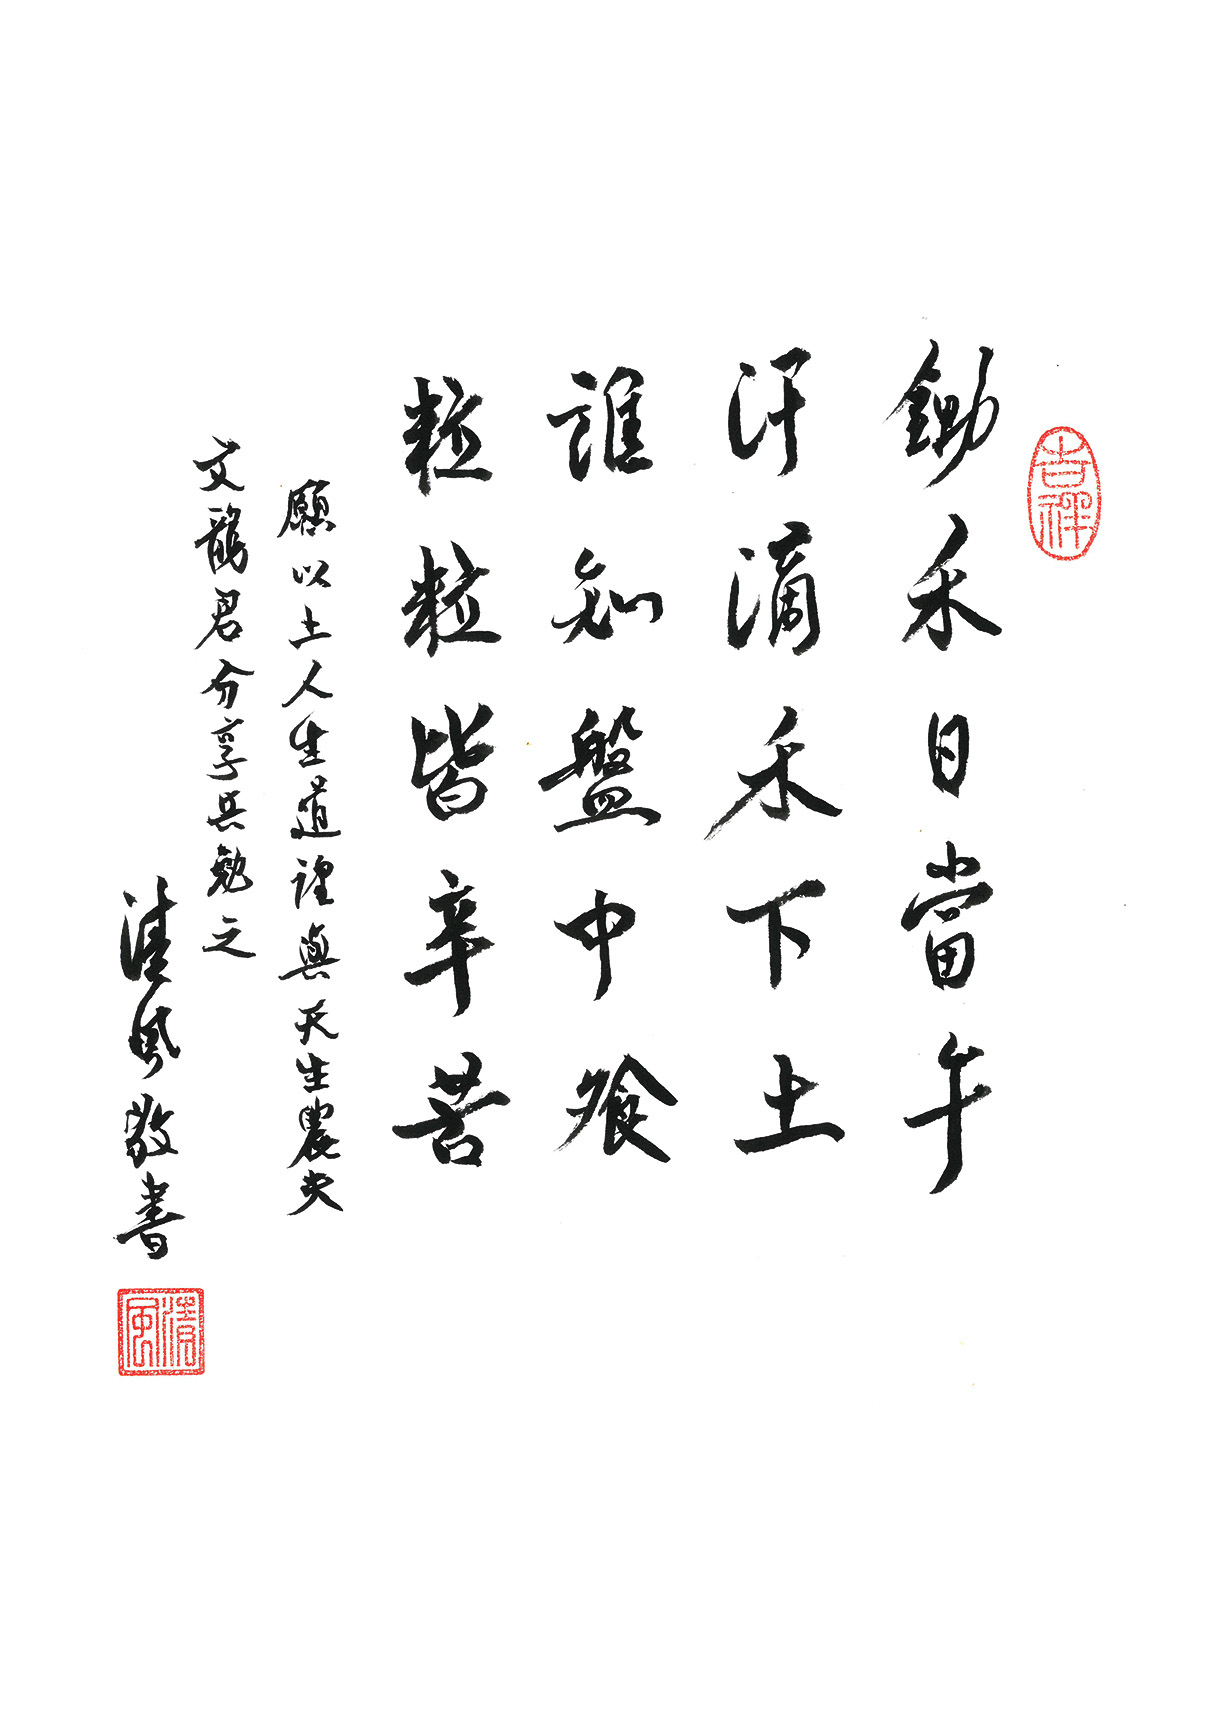 吉祥
鋤禾日當午
汗滴禾下土
誰知盤中飧
粒粒皆辛苦
願以土人生道謹與天生農夫
文龍君分享共勉之
風敬書
風